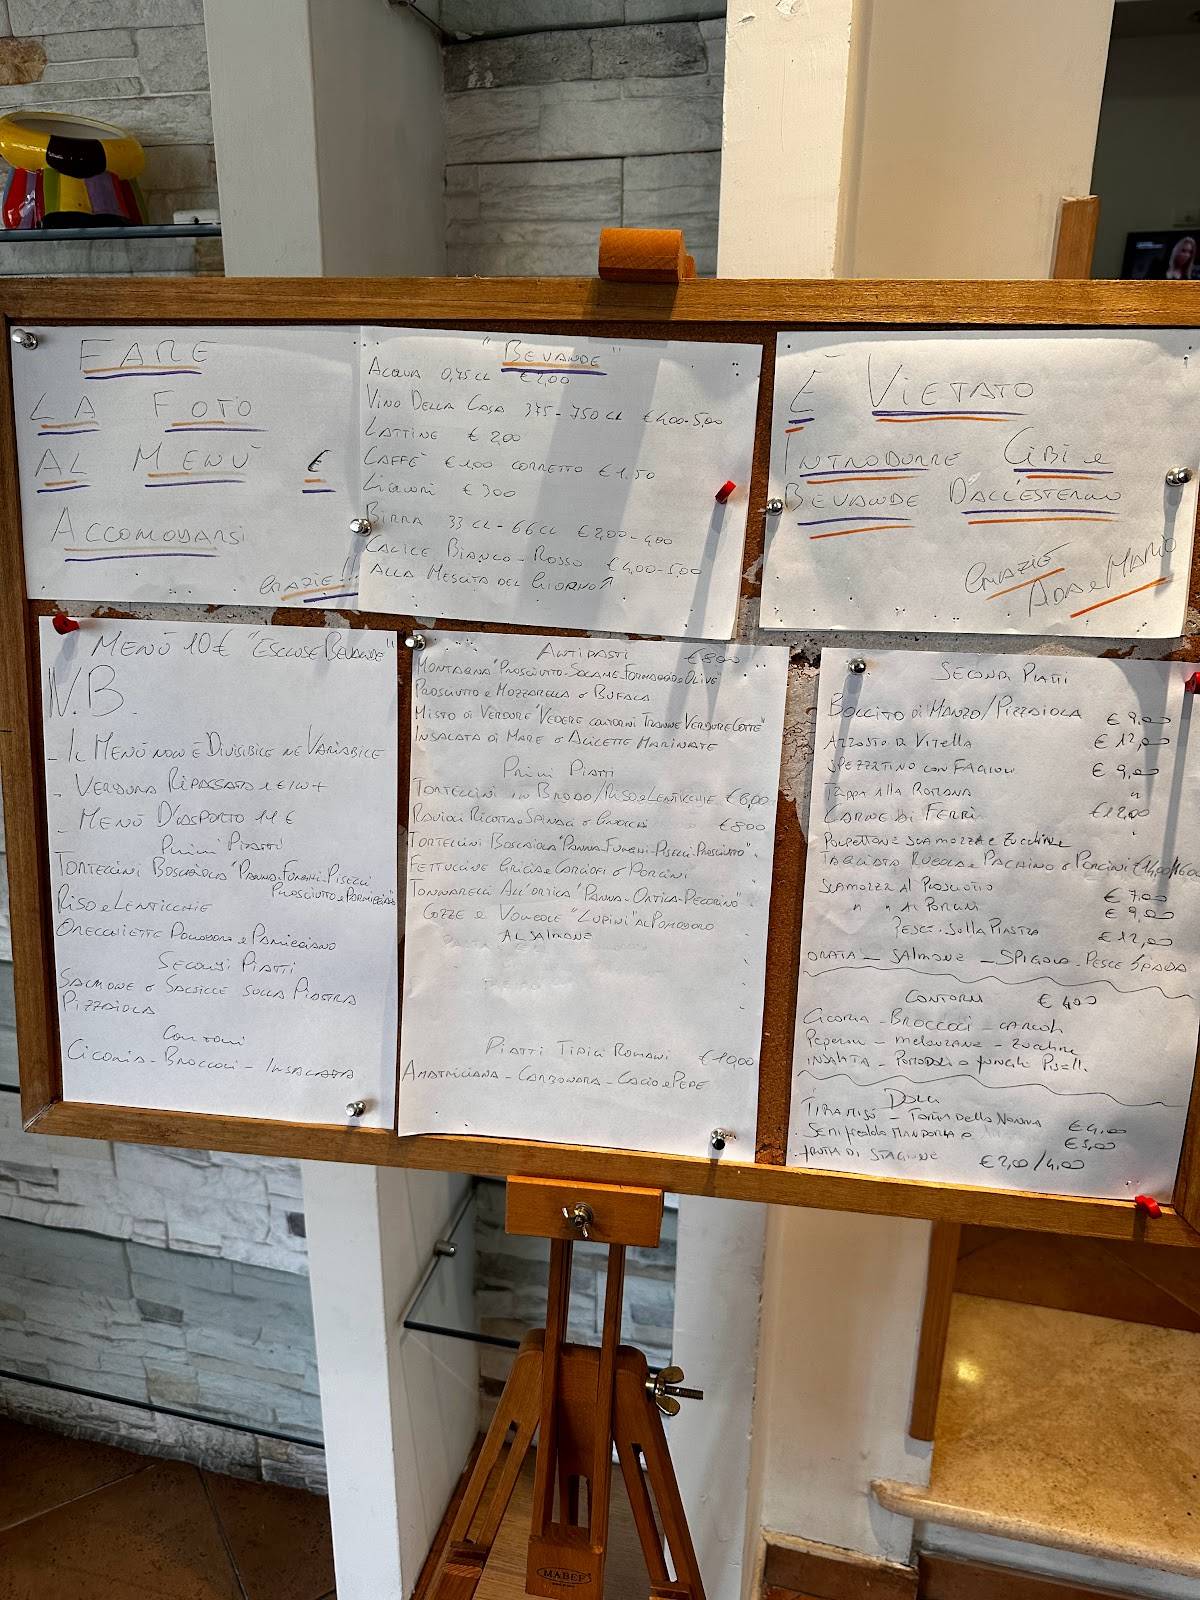 FARE
LA FOTO
AL MENÙ E
ACCOMODARSI
GRAZIE!!!
"BEVANDE"
ACQUA 0,75 CL €2,00
VINO DELLA CASA 375-750 CL €4,00-5,00
LATTINE €2,00
CAFFÈ €1,00 CORRETTO €1,50
LIQUORI €3,00
BIRRA 33 CL-66 CL €2,00-4,00
CALICE BIANCO-ROSSO €4,00-5,00
ALLA MESCITA DEL GIORNO
È VIETATO
INTRODURRE CIBI E
BEVANDE DALL'ESTERNO
GRAZIE
ADA e MARIO
MENÙ 10€ "ESCLUSE BEVANDE"
N.B.
- IL MENÙ NON È DIVISIBILE NE VARIABILE
- VERDURA RIPASSATA 1€ IN +
- MENÙ D'ASPORTO 11€
PRIMI PIATTI
TORTELLINI BOSCAIOLA "PANNA-FUNGHI-PISELLI
PROSCIUTTO e PARMIGIANO"
RISO e LENTICCHIE
ORECCHIETTE POMODORO e PARMIGIANO
SECONDI PIATTI
SALMONE O SALSICCE SULLA PIASTRA
PIZZAIOLA
CONTORNI
CICORIA-BROCCOLI-INSALATA
ANTIPASTI €8,00
MONTAGNA "PROSCIUTTO-SALAME-FORMAGGIO e OLIVE"
PROSCIUTTO e MOZZARELLA O BUFALA
MISTO DI VERDURE "VEDERE CONTORNI TRANNE VERDURE COTTE"
INSALATA DI MARE O ALICETTE MARINATE
PRIMI PIATTI
TORTELLINI IN BRODO/RISO e LENTICCHIE €6,00
RAVIOLI RICOTTA e SPINACI O GNOCCHI €8,00
TORTELLINI BOSCAIOLA "PANNA-FUNGHI-PISELLI-PROSCIUTTO"
FETTUCCINE GRICIA e CARCIOFI O PORCINI
TONNARELLI ALL'ORTICA "PANNA-ORTICA-PECORINO"
COZZE e VONGOLE "LUPINI" AL POMODORO
AL SALMONE
PIATTI TIPICI ROMANI €10,00
AMATRICIANA-CARBONARA-CACIO e PEPE
SECONDI PIATTI
BOLLITO DI MANZO/PIZZAIOLA €9,00
ARROSTO DI VITELLA €12,00
SPEZZATINO CON FAGIOLI €9,00
TRIPPA ALLA ROMANA "
CARNE AI FERRI €12,00
POLPETTONE SCAMORZA E ZUCCHINE "
TAGLIATA RUCOLA e PACHINO O PORCINI €14,00/16,00
SCAMORZA AL PROSCIUTTO €7,00
" " AI PORCINI €9,00
PESCE SULLA PIASTRA €12,00
ORATA - SALMONE - SPIGOLA - PESCE SPADA
CONTORNI €4,00
CICORIA - BROCCOLI - CARCIOFI
PEPERONI - MELANZANE - ZUCCHINE
INSALATA - POMODORI O FUNGHI PISELLI
DOLCI
TIRAMISÙ - TORTA DELLA NONNA €4,00
SEMIFREDDO MANDORLA O €5,00
FRUTTA DI STAGIONE €2,00/4,00
MABEF